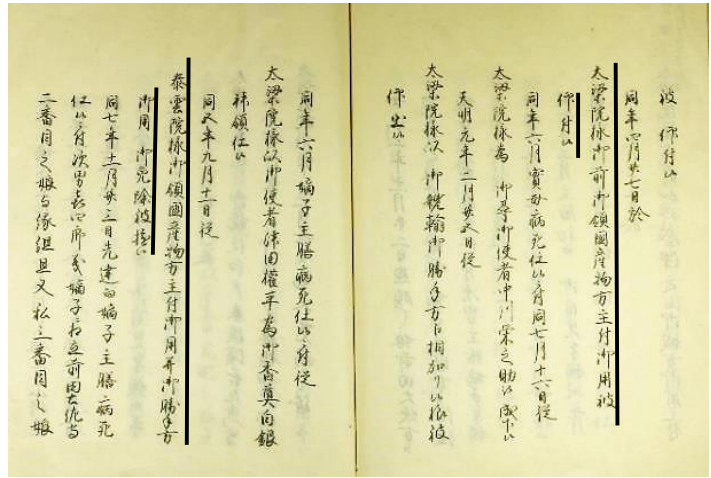 被　仰付候
同年四月廿七日於
太梁院様御前御領國産物方主付御用被
仰付候
同年六月實妙病死仕候ニ付同七月十六日従
太梁院様為　御尋御使者中川栄之助被成下候
天明元年二月廿五日従
太梁院様以　御親翰御勝手方ニ相加り候様被
仰出候
同年六月嫡子主膳病死仕候ニ付従
太梁院様以御使者津田權平為御香奠白銀
拝領仕候
同五年九月十一日従
泰雲院様御領國産物方主付御用并御勝手方
御用　御免除被遊候
同七年十一月廿三日先達而嫡子主膳病死
仕候ニ付次男喜四郎義嫡子
二番目之娘与縁組且又私三番目之娘